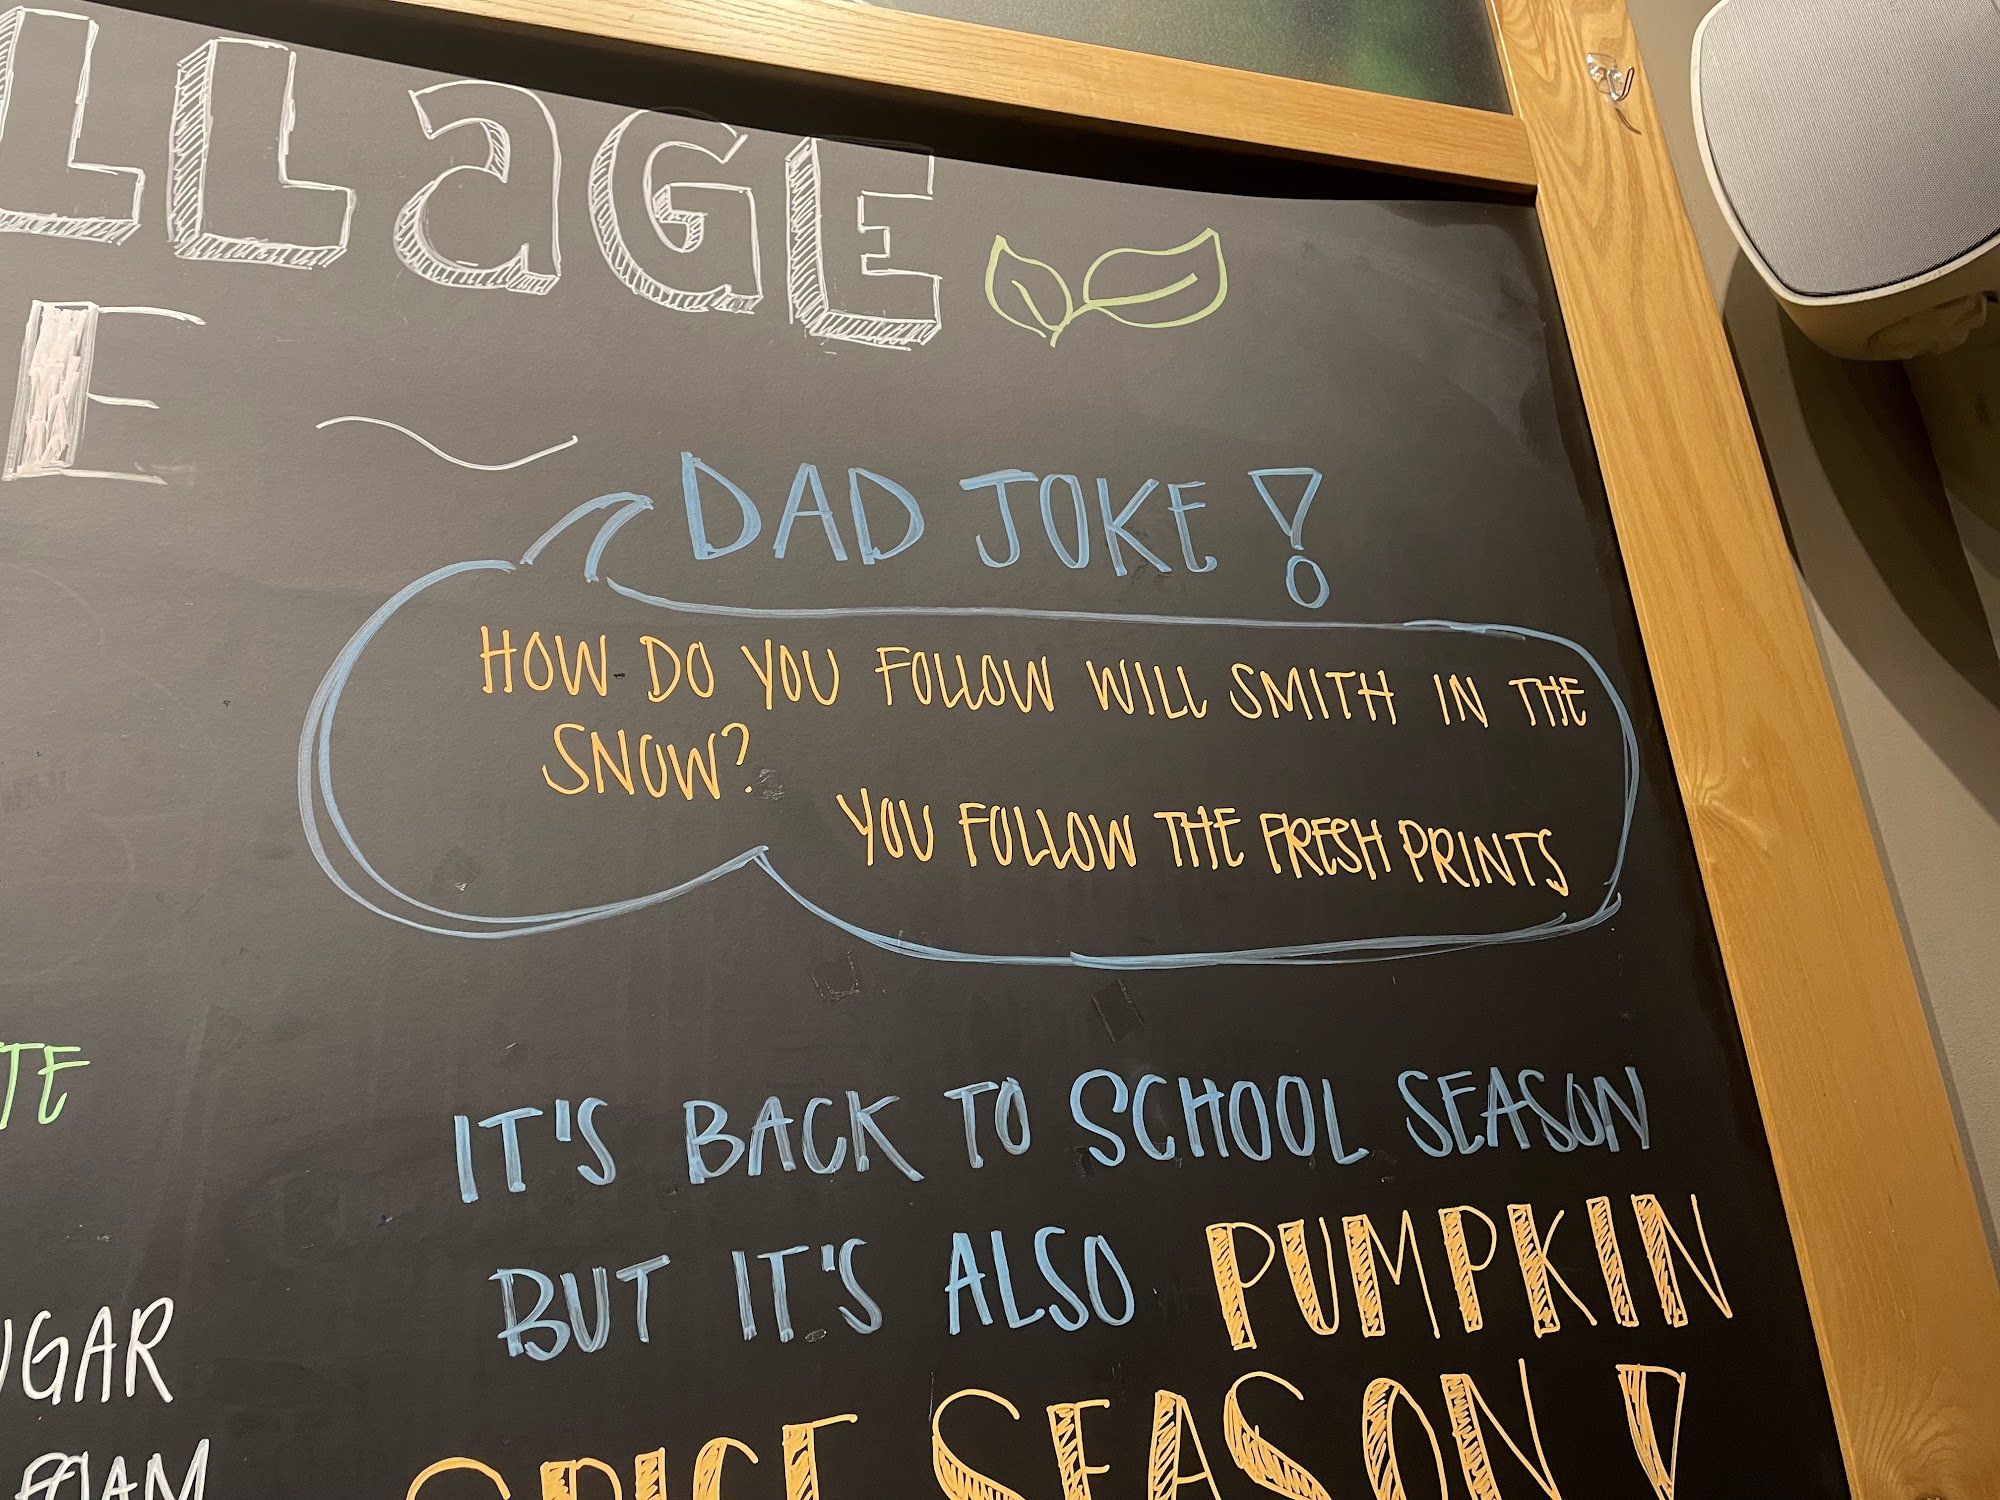 LLAGE
E
DAD JOKE!
HOW DO YOU FOLLOW WILL SMITH IN THE
SNOW?
YOU FOLLOW THE FRESH PRINTS
TE
IT'S BACK TO SCHOOL SEASON
BUT IT'S ALSO PUMPKIN
SPICE SEASON!
UGAR
FOAM